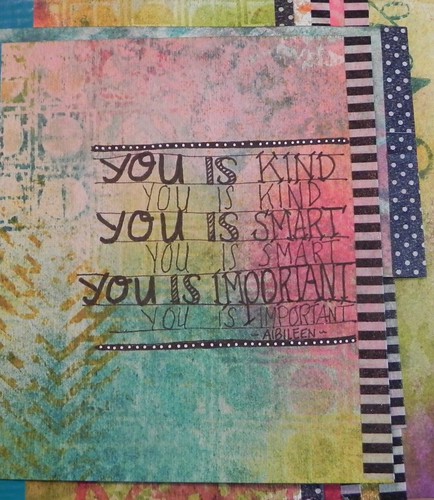 YOU IS KIND
YOU IS KIND
YOU IS SMART
YOU IS SMART
YOU IS IMPORTANT
YOU IS IMPORTANT
-AIBILEEN-